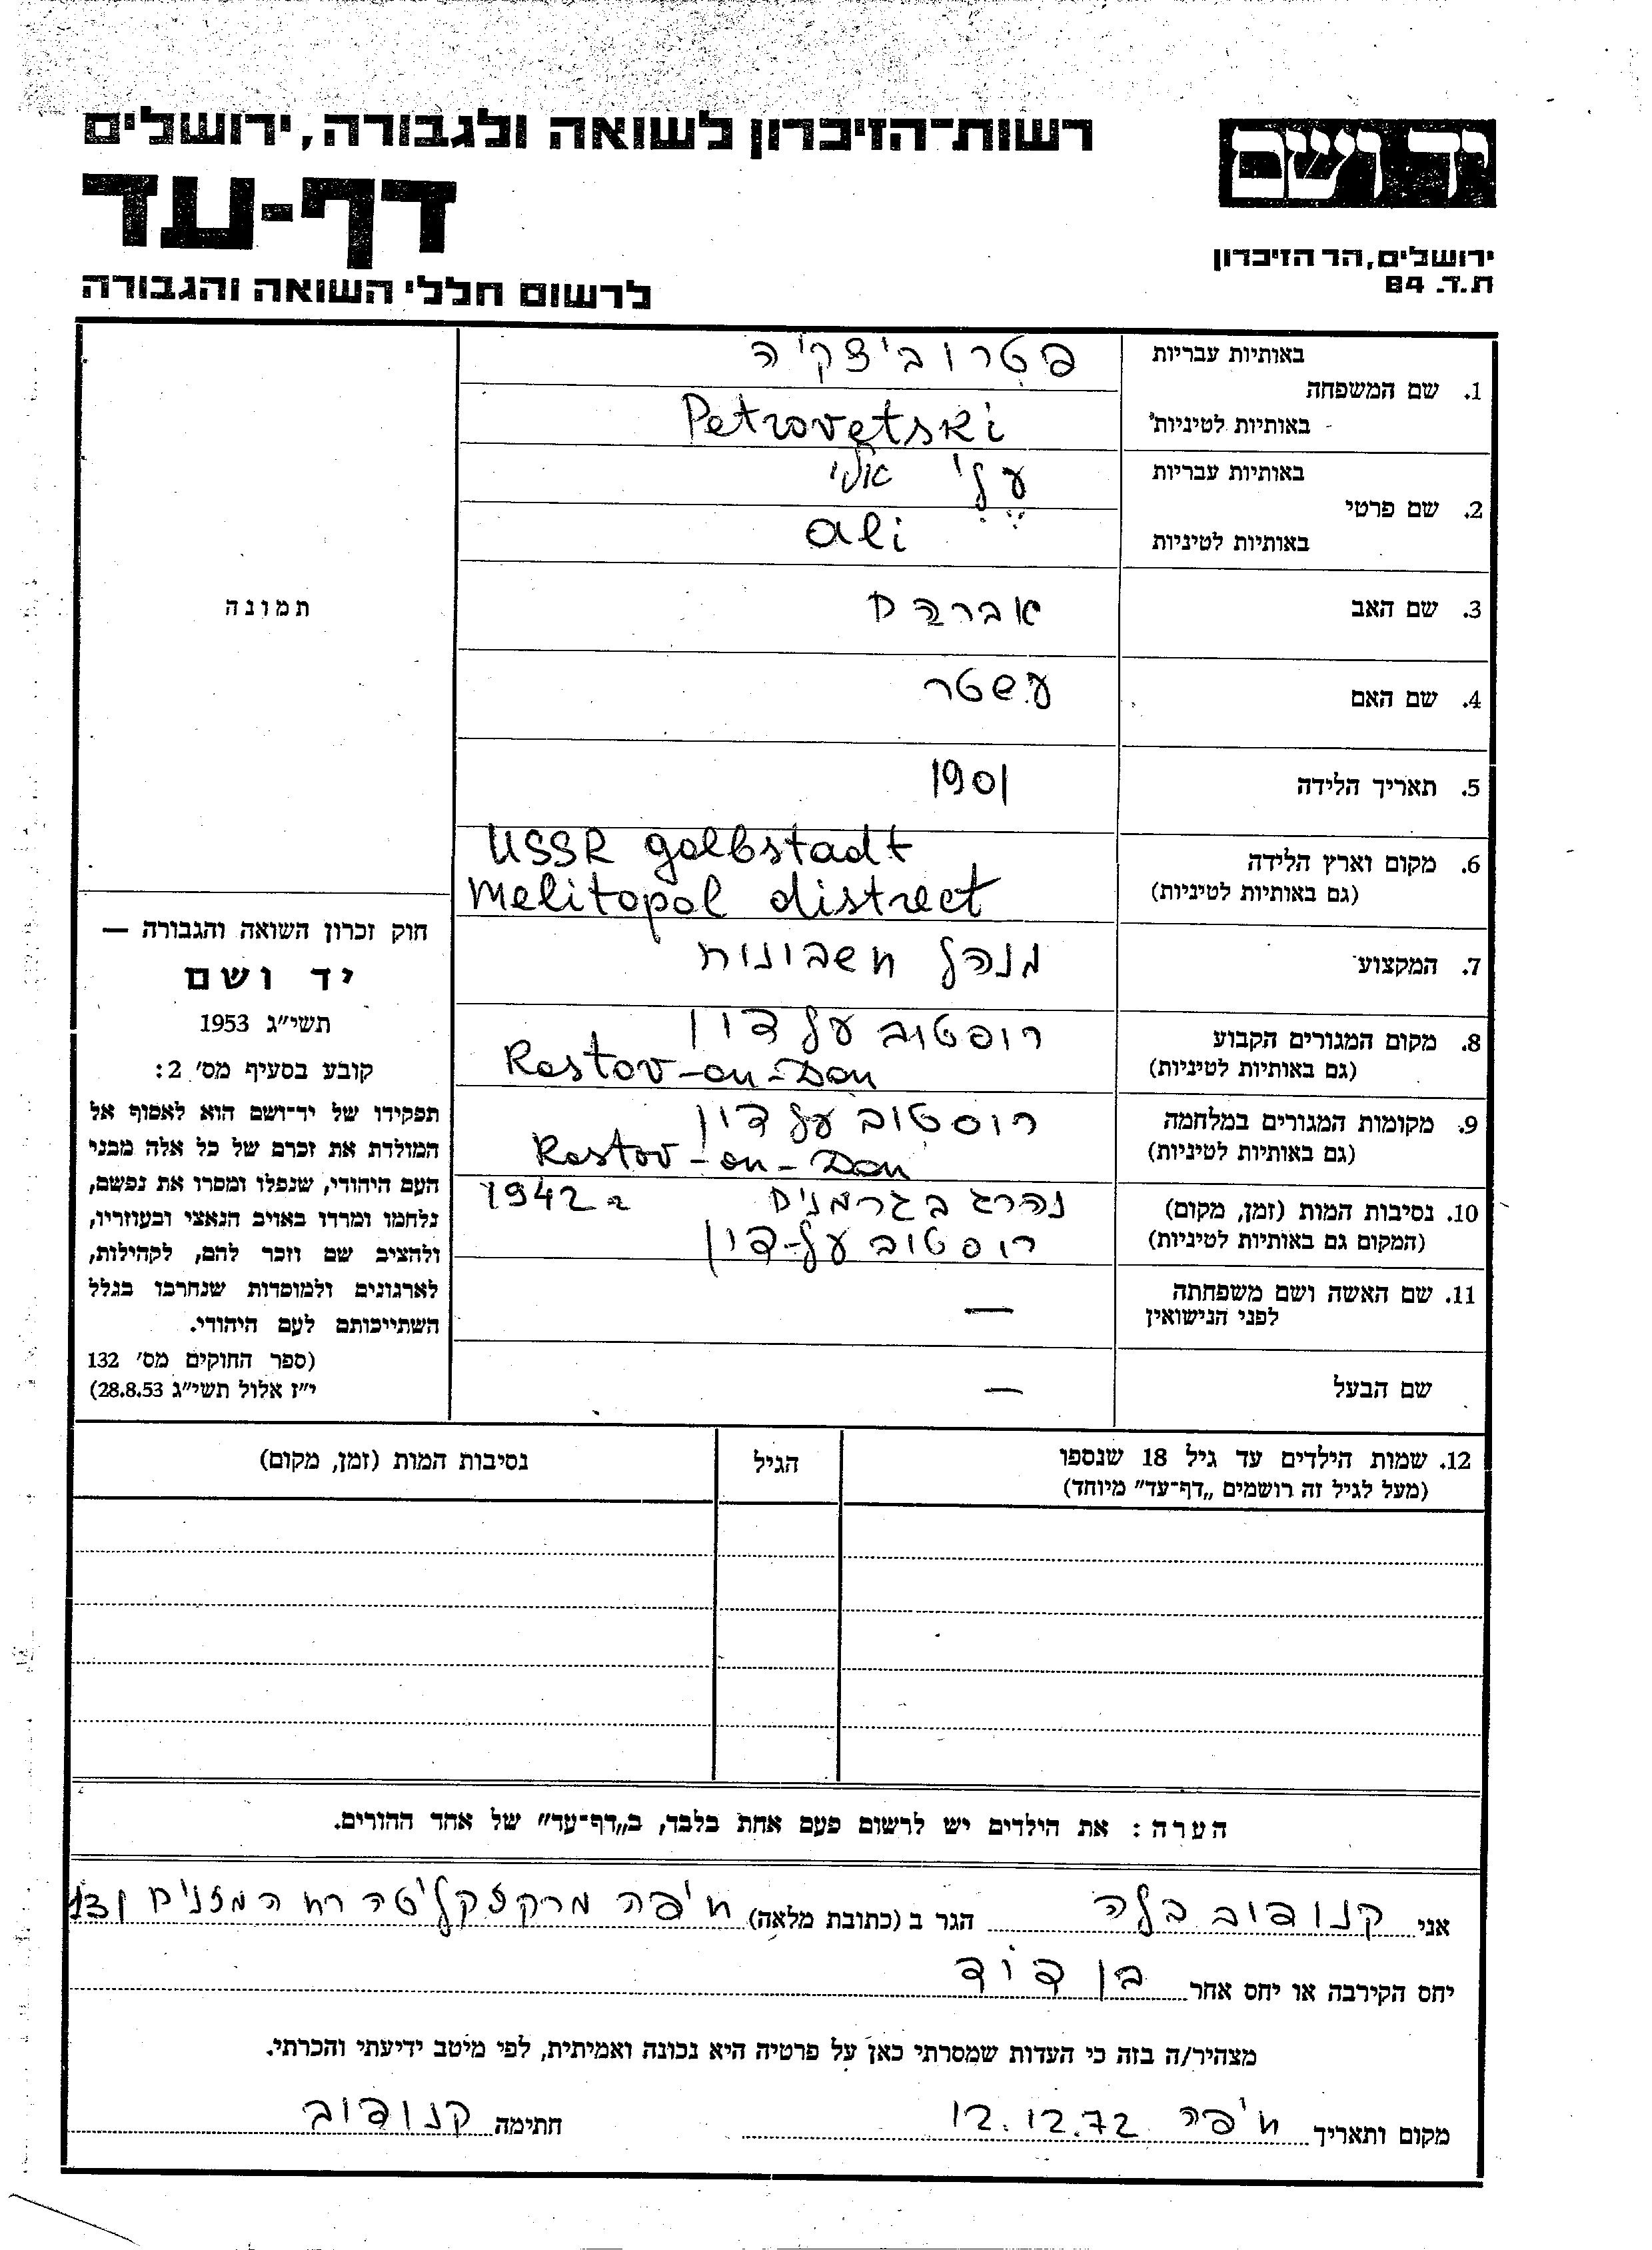 רשות־הזיכרון לשואה ולגבורה, ירושלים
יד ושם
דף-עד
ירושלים, הר הזיכרון
ת.ד. 84
לרשום חללי השואה והגבורה
באותיות עבריות
פטרוביצקיה
1. שם המשפחה
באותיות לטיניות
Petrovetski
באותיות עבריות
עלי אלי
2. שם פרטי
באותיות לטיניות
ali
תמונה
3. שם האב
אברהם
4. שם האם
עשטר
5. תאריך הלידה
1901
6. מקום וארץ הלידה
(גם באותיות לטיניות)
USSR golbstadt
Melitopol distrect
7. המקצוע
מנהל חשבונות
8. מקום המגורים הקבוע
(גם באותיות לטיניות)
רוסטוב על דון
Rostov-on-Don
9. מקומות המגורים במלחמה
(גם באותיות לטיניות)
רוסטוב על דון
Rostov-on-Don
10. נסיבות המות (זמן, מקום)
(המקום גם באותיות לטיניות)
נהרג בגרמנים ב 1942
רוסטוב על-דון
11. שם האשה ושם משפחתה
לפני הנישואין
—
שם הבעל
—
חוק זכרון השואה והגבורה —
יד ושם
תשי״ג 1953
קובע בסעיף מס׳ 2:
תפקידו של יד־ושם הוא לאסוף אל
המולדת את זכרם של כל אלה מבני
העם היהודי, שנפלו ומסרו את נפשם,
נלחמו ומרדו באויב הנאצי ובעוזריו,
ולהציב שם וזכר להם, לקהילות,
לארגונים ולמוסדות שנחרבו בגלל
השתייכותם לעם היהודי.
(ספר החוקים מס׳ 132
י״ז אלול תשי״ג 28.8.53)
12. שמות הילדים עד גיל 18 שנספו
(מעל לגיל זה רושמים „דף־עד״ מיוחד)
הגיל
נסיבות המות (זמן, מקום)
הערה: את הילדים יש לרשום פעם אחת בלבד, ב„דף־עד״ של אחד ההורים.
אני קנופוב בלה הגר ב (כתובת מלאה) חיפה מרקזקליטה רח המזנים 13ד
יחס הקירבה או יחס אחר בן דוד
מצהיר/ה בזה כי העדות שמסרתי כאן על פרטיה היא נכונה ואמיתית, לפי מיטב ידיעתי והכרתי.
מקום ותאריך חיפה 12.12.72 חתימה קנופוב